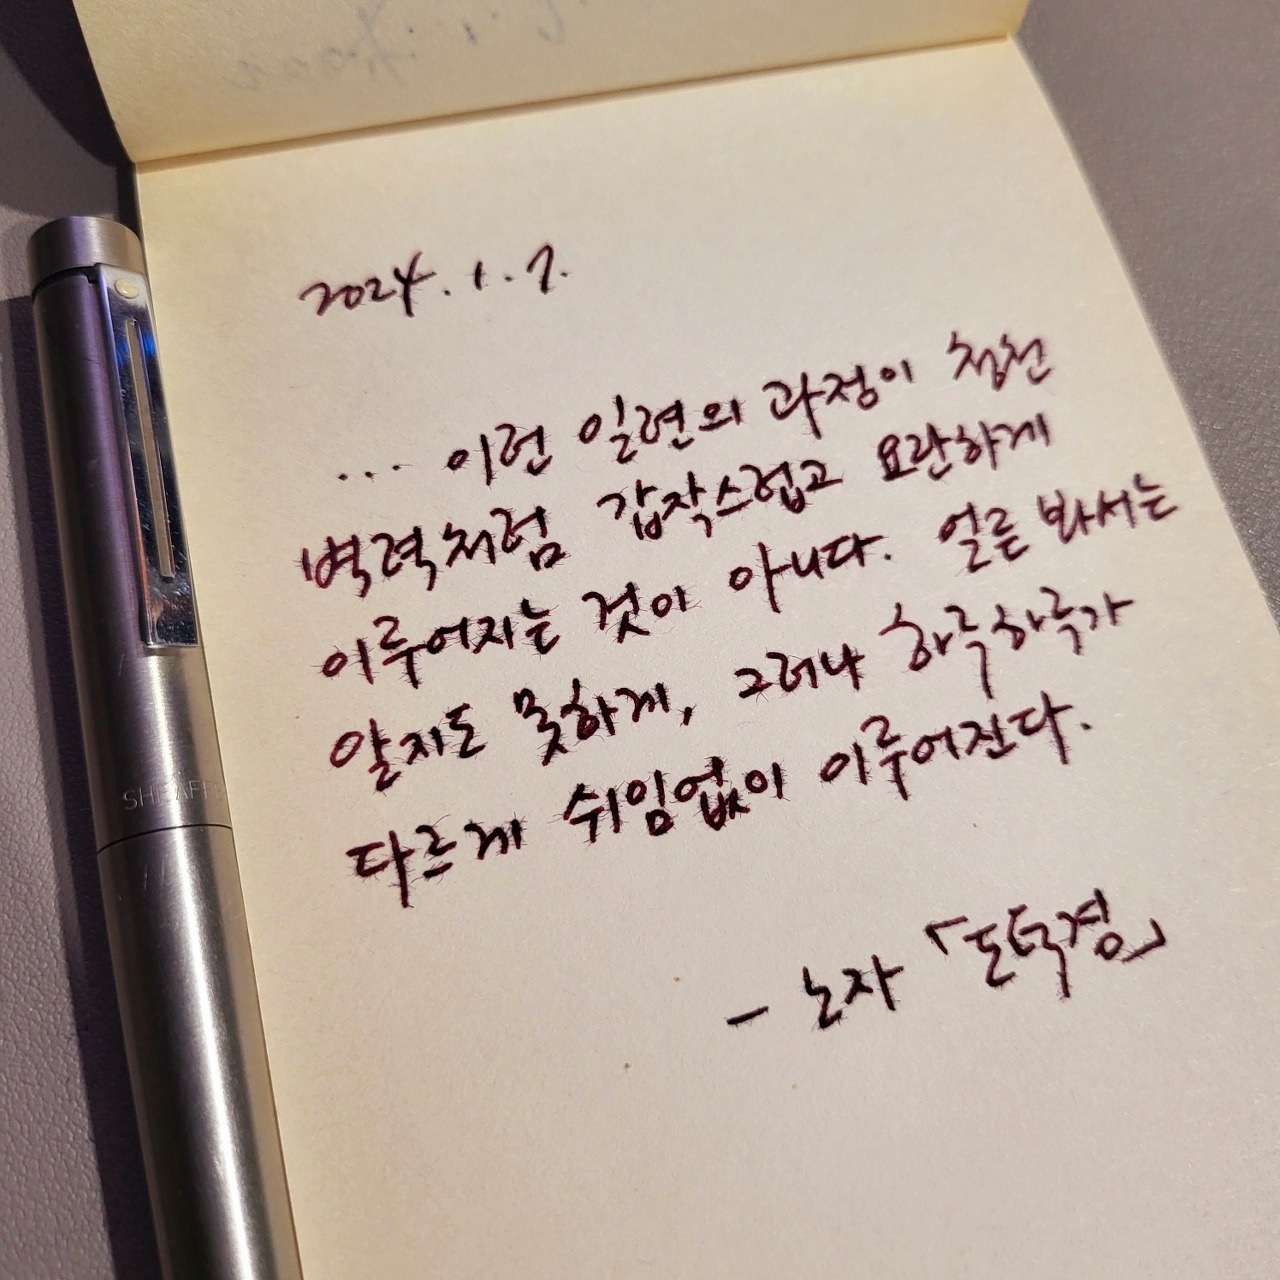 2024. 1. 7.
... 이런 일련의 과정이 청천
벽력처럼 갑작스럽고 요란하게
이루어지는 것이 아니다. 얼른 봐서는
알지도 못하게, 그러나 하루하루가
다르게 쉬임없이 이루어진다.
- 노자 「도덕경」
SHEAFFE